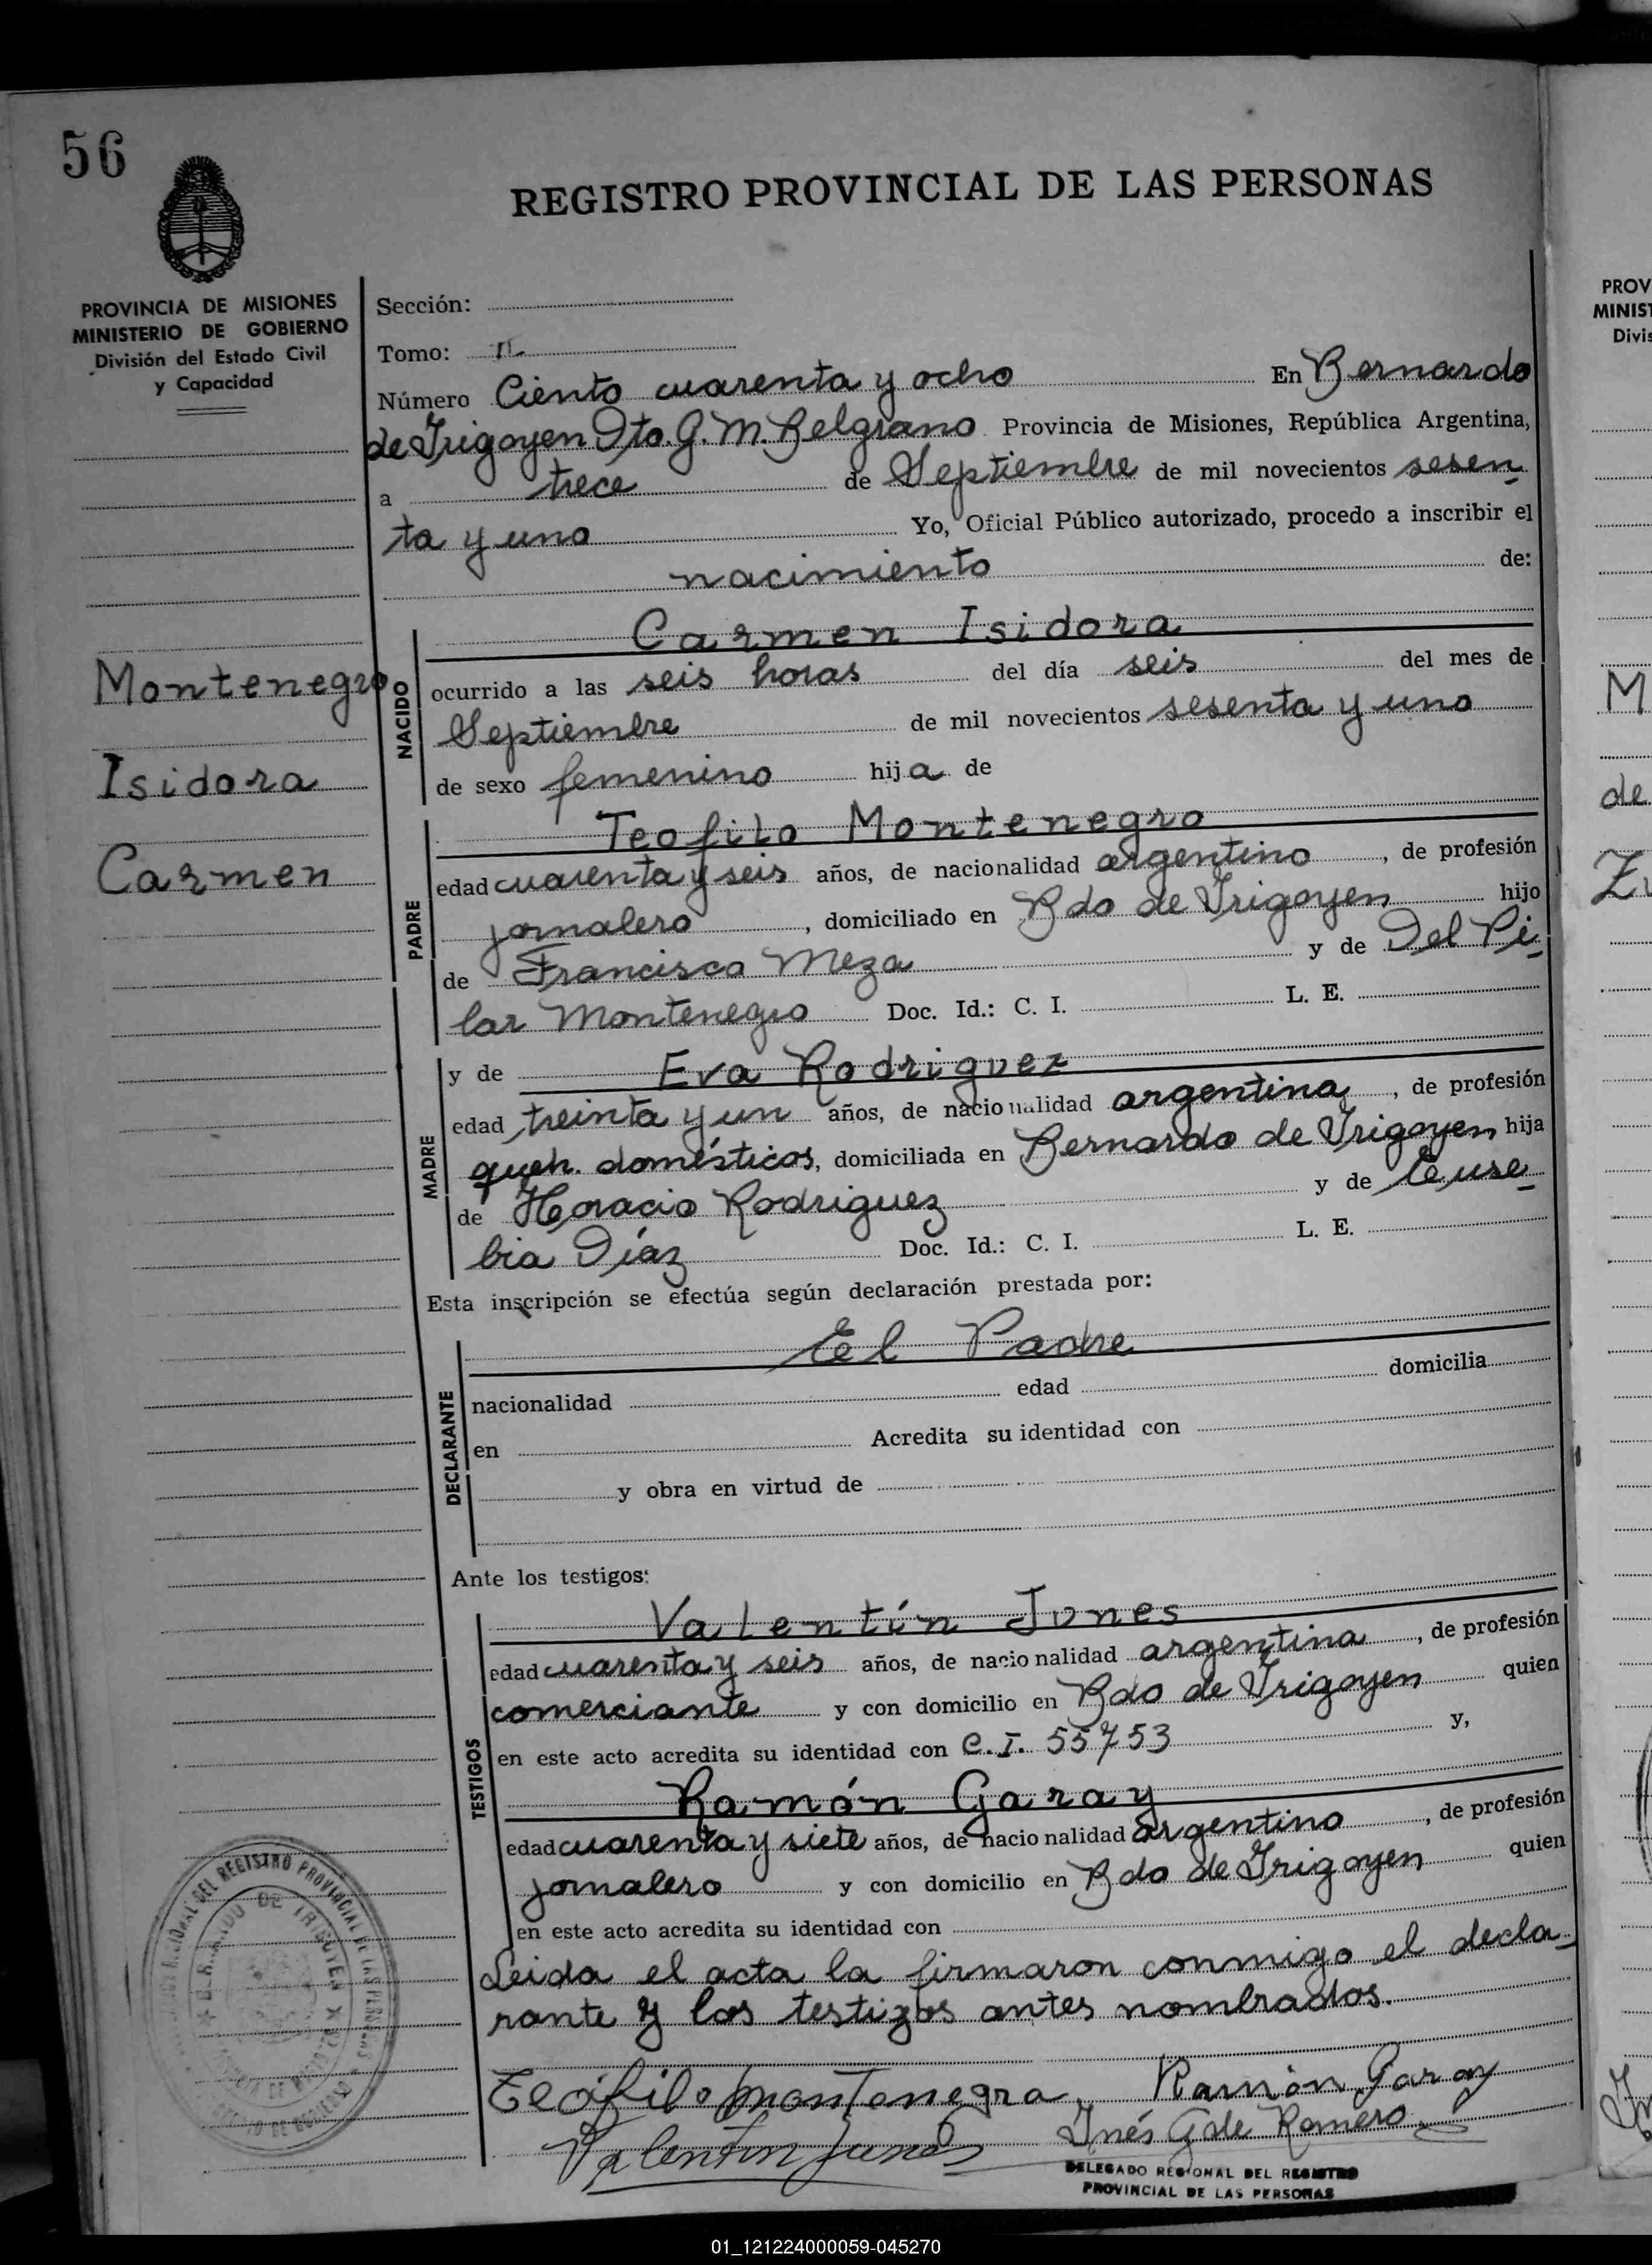 56
REGISTRO PROVINCIAL DE LAS PERSONAS
PROVINCIA DE MISIONES
MINISTERIO DE GOBIERNO
División del Estado Civil
y Capacidad
Sección:
Tomo: II
Número Ciento cuarenta y ocho En Bernardo
de Irigoyen Dto. G. M. Belgrano Provincia de Misiones, República Argentina,
a trece de Septiembre de mil novecientos sesen-
ta y uno Yo, Oficial Público autorizado, procedo a inscribir el
nacimiento de:
Montenegro
Isidora
Carmen
NACIDO
Carmen Isidora
ocurrido a las seis horas del día seis del mes de
Septiembre de mil novecientos sesenta y uno
de sexo femenino hija de
PADRE
Teofilo Montenegro
edad cuarenta y seis años, de nacionalidad argentino, de profesión
jornalero, domiciliado en Bdo de Irigoyen hijo
de Francisco Meza y de Del Pi-
lar Montenegro Doc. Id.: C. I. L. E.
MADRE
y de Eva Rodriguez
edad treinta y un años, de nacionalidad argentina, de profesión
queh. domésticos, domiciliada en Bernardo de Irigoyen hija
de Horacio Rodriguez y de Euse-
bia Díaz Doc. Id.: C. I. L. E.
Esta inscripción se efectúa según declaración prestada por:
DECLARANTE
El Padre
nacionalidad edad domicilia
en Acredita su identidad con
y obra en virtud de
Ante los testigos:
TESTIGOS
Valentín Junes
edad cuarenta y seis años, de nacionalidad argentina, de profesión
comerciante y con domicilio en Bdo de Irigoyen quien
en este acto acredita su identidad con C.I. 55753 y,
Ramón Garay
edad cuarenta y siete años, de nacionalidad argentino, de profesión
jornalero y con domicilio en Bdo de Irigoyen quien
en este acto acredita su identidad con
Leida el acta la firmaron conmigo el decla-
rante y los testigos antes nombrados.
Teófilo Montenegro Ramón Garay
Valentin Junes Inés G de Romero
DELEGADO REGIONAL DEL REGISTRO
PROVINCIAL DE LAS PERSONAS
DEL REGISTRO PROVINCIAL DE LAS PERSONAS
BERNARDO DE IRIGOYEN
PROV
MINIST
Divis
M
de
01_121224000059-045270